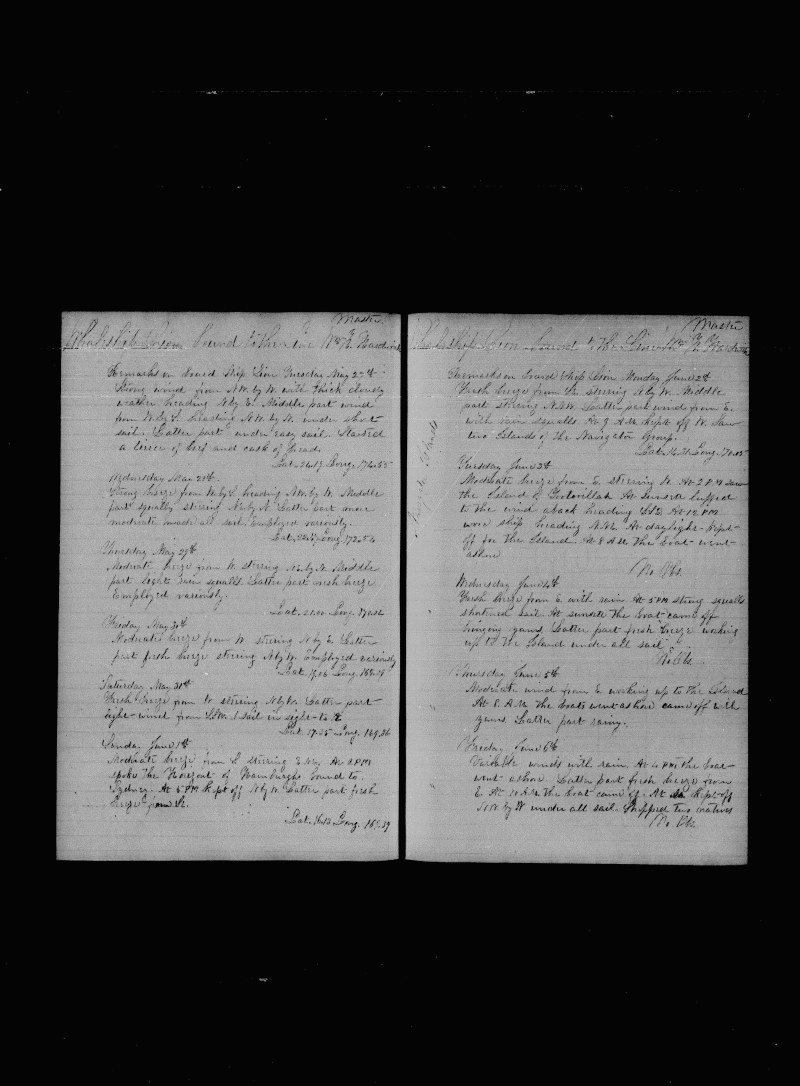 Master
Whaleship Lion bound to the Line Wm H. Hardwick
Remarks on board Ship Lion Tuesday May 27th
Strong wind from N.W. by W. with thick cloudy
wather heading N by E. Middle part wind
from W by S. heading N.W. by N. under short
sail. Latter part under easy sail. Started
a tierce of beef and cask of bread.
Lat. 24.19 Long. 174.55
Wednesday May 28th
Strong breeze from W by S. heading N.W. by N. Middle
part squally steering N by W. Latter part more
moderate made all sail. Employed variously.
Lat. Long. 172.54
Thursday May 29th
Moderate breeze from W. steering N. by W. Middle
part light rain squalls. Latter part fresh breeze
Employed variously.
Lat. 21.00 Long.
Friday May 30th
Moderate breeze from W steering N by E. Latter
part fresh breeze steering N by W. Employed variously
Lat. 19.06 Long.
Saturday May 31st
Fresh breeze from W steering N by W. Latter part
light wind from S.S.W. 1 sail in sight to N
Lat. 17.55 Long. 169.36
Sunday June 1st
Moderate breeze from S. steering At 2 P.M
spoke the of Hamburgh bound to
Sydney. At 5 P.M kept off N by W. Latter part fresh
breeze from S.E.
Lat. 16.13 Long. 169.39
Master
Whaleship Lion bound to the Line Wm H. Hardwick
Remarks on board Ship Lion Monday June 2d
Fresh breeze from S. steering N by W. Middle
part steering N.N.W. Latter part wind from E.
with rain squalls At 9 A.M. kept off W. Saw
two Islands of the Navigator Group.
Lat. 14.31 Long. 170.05
Tuesday June 3d
Moderate breeze from E. steering W. At 2 P.M saw
the Island of Tootooillah At sunset luffed
to the wind aback heading S.S.E. At 12 P.M
wore ship heading N.N.E. At daylight kept
off for the Island. At 8 A.M. the boat went
ashore
No Obs.
Wednesday June 4th
Fresh breeze from E with rain At 5 P.M strong squalls
shortened sail. At sunset the boat came off
bringing yams. Latter part fresh breeze working
up to the Island under all sail.
No Obs.
Thursday June 5th
Moderate wind from E. working up to the Island
At 8. A.M. the boats went ashore came off with
yams Latter part rainy.
Friday June 6th
Variable winds with rain. At 4 P.M the boat
went ashore. Latter part fresh breeze from
E. At 10 A.M. the boat came off. At kept off
N.W. by W under all sail. Shipped two natives
No Obs.
Islands